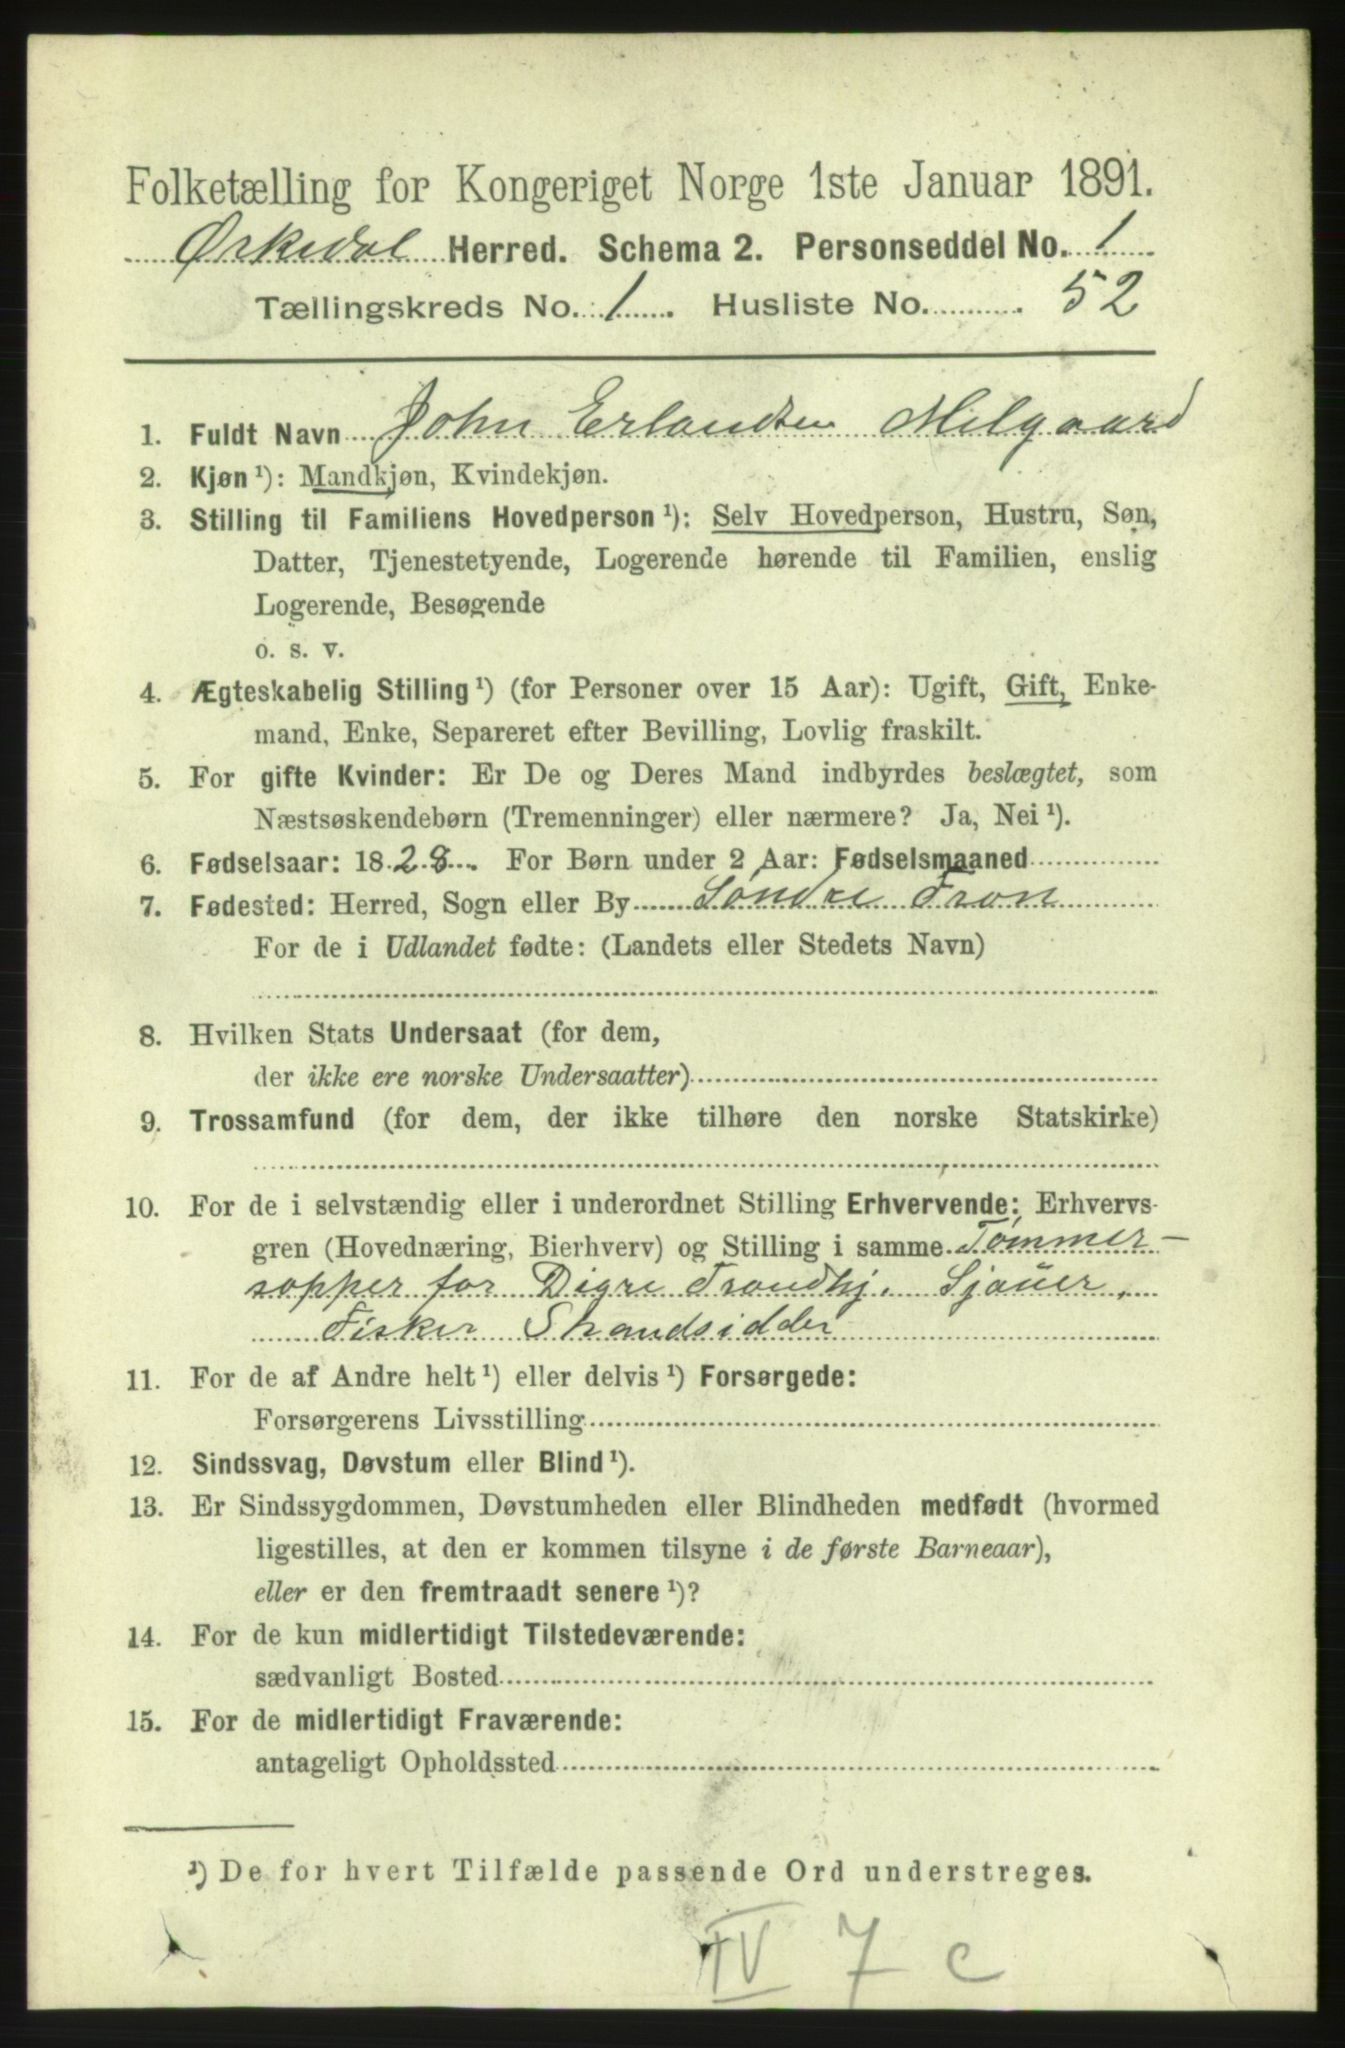 Folketælling for Kongeriget Norge 1ste Januar 1891.
Ørkedal Herred. Schema 2. Personseddel No. 1
Tællingskreds No. 1. Husliste No. 52
1. Fuldt Navn John Erlandsen Melgaard
2. Kjøn¹): Mandkjøn, Kvindekjøn.
3. Stilling til Familiens Hovedperson¹): Selv Hovedperson, Hustru, Søn,
Datter, Tjenestetyende, Logerende hørende til Familien, enslig
Logerende, Besøgende
o. s. v.
4. Ægteskabelig Stilling¹) (for Personer over 15 Aar): Ugift, Gift, Enke-
mand, Enke, Separeret efter Bevilling, Lovlig fraskilt.
5. For gifte Kvinder: Er De og Deres Mand indbyrdes beslægtet, som
Næstsøskendebørn (Tremenninger) eller nærmere? Ja, Nei¹).
6. Fødselsaar: 1828. For Børn under 2 Aar: Fødselsmaaned
7. Fødested: Herred, Sogn eller By Søndre Fron
For de i Udlandet fødte: (Landets eller Stedets Navn)
8. Hvilken Stats Undersaat (for dem,
der ikke ere norske Undersaatter)
9. Trossamfund (for dem, der ikke tilhøre den norske Statskirke)
10. For de i selvstændig eller i underordnet Stilling Erhvervende: Erhvervs-
gren (Hovednæring, Bierhverv) og Stilling i samme Tømmer-
sopper for Digre Trondhj. Sjauer,
Fisker Strandsidder
11. For de af Andre helt¹) eller delvis¹) Forsørgede:
Forsørgerens Livsstilling
12. Sindssvag, Døvstum eller Blind¹).
13. Er Sindssygdommen, Døvstumheden eller Blindheden medfødt (hvormed
ligestilles, at den er kommen tilsyne i de første Barneaar),
eller er den fremtraadt senere¹)?
14. For de kun midlertidigt Tilstedeværende:
sædvanligt Bosted
15. For de midlertidigt Fraværende:
antageligt Opholdssted
¹) De for hvert Tilfælde passende Ord understreges.
IV 7 c